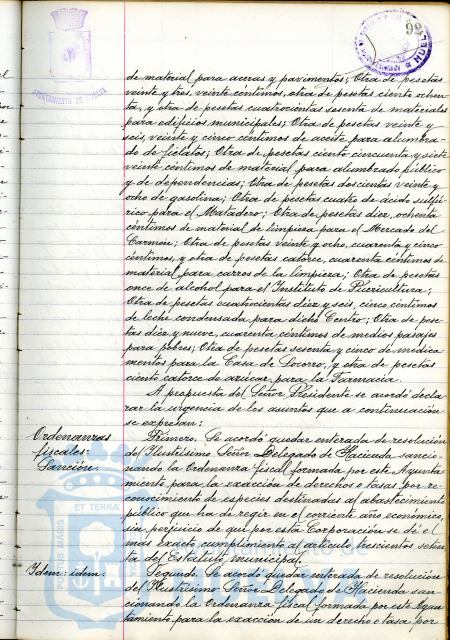 98
AYUNTAMIENTO DE HUELVA
HUELVA
de material para aceras y pavimentos; Otra de pesetas
veinte y tres, veinte céntimos, otra de pesetas ciento ochen-
ta, y otra de pesetas cuatrocientas sesenta de materiales
para edificios municipales; Otra de pesetas veinte y
seis, veinte y cinco céntimos de aceite para alumbra-
do de fielatos; Otra de pesetas ciento cincuenta y siete
veinte céntimos de material para alumbrado público
y de dependencias; Otra de pesetas doscientas veinte y
ocho de gasolina; Otra de pesetas cuatro de ácido sulfú-
rico para el Matadero; Otra de pesetas diez, ochenta
céntimos de material de limpieza para el Mercado del
Carmen; Otra de pesetas veinte y ocho, cuarenta y cinco
céntimos, y otra de pesetas catorce, cuarenta céntimos de
material para carros de la limpieza; Otra de pesetas
once de alcohol para el Instituto de Puericultura;
Otra de pesetas cuatrocientas diez y seis, cinco céntimos
de leche condensada para dicho Centro; Otra de pese-
tas diez y nueve, cuarenta céntimos de medios pasajes
para pobres; Otra de pesetas sesenta y cinco de medica-
mentos para la Casa de Socorro, y otra de pesetas
ciento catorce de azúcar para la Farmacia.
A propuesta del Señor Presidente se acordó decla-
rar la urgencia de los asuntos que a continuación
se expresan:
Ordenanzas
fiscales:
Sanción.
Primero. Se acordó quedar enterada de resolución
del Ilustrísimo Señor Delegado de Hacienda sancio-
nando la Ordenanza fiscal formada por este Ayunta-
miento para la exacción de derechos o tasas por re-
conocimiento de especies destinadas al abastecimiento
público que ha de regir en el corriente año económico,
sin perjuicio de que por esta Corporación se dé el
más exacto cumplimiento al artículo trescientos seten-
ta del Estatuto municipal.
Idem: idem.
Segundo. Se acordó quedar enterada de resolución
del Ilustrísimo Señor Delegado de Hacienda san-
cionando la Ordenanza fiscal formada por este Ayun-
tamiento para la exacción de un derecho o tasa por